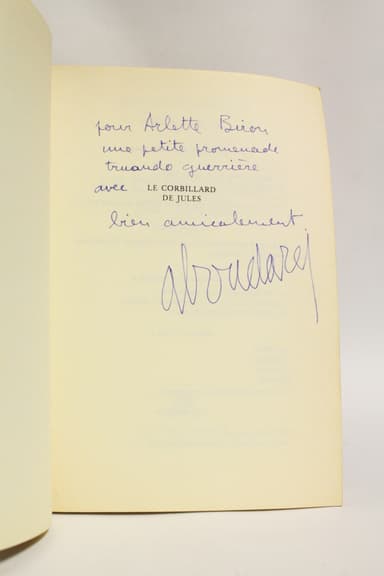 pour Arlette Biron
une petite promenade
truando guerrière
avec LE CORBILLARD
DE JULES
bien amicalement
aboudard